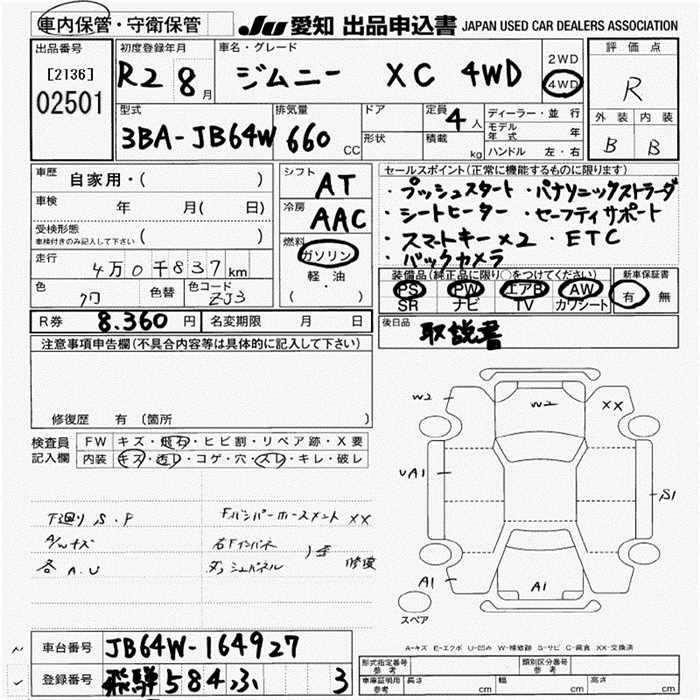 車内保管・守衛保管
JU 愛知 出品申込書 JAPAN USED CAR DEALERS ASSOCIATION
出品番号
[2136]
02501
初度登録年月
R2 8月
車名・グレード
ジムニー XC 4WD
2WD
4WD
評価点
R
外装 内装
B B
型式
3BA-JB64W
排気量
660 CC
ドア
形状
定員 4人
積載 kg
ディーラー・並行
モデル年式 年
ハンドル 左・右
車歴 自家用・( )
車検 年 月( 日)
受検形態
車検付きのみ記入して下さい ( )
走行 4万0千837km
色 クロ 色替 色コード ZJ3
シフト AT
冷房 AAC
燃料
ガソリン
軽・油
( )
セールスポイント(正常に機能するものに限ります)
・プッシュスタート・パナソニックストラーダ
・シートヒーター・セーフティサポート
・スマートキー×2・ETC
・バックカメラ
装備品(純正品に限り○をつけてください)
PS PW エアB AW
SR ナビ TV カワシート
新車保証書
有 無
R券 8.360円 名変期限 月 日
後日品 取説書
注意事項申告欄(不具合内容等は具体的に記入して下さい)
修復歴 有 (箇所 )
検査員記入欄
FW キズ・飛石・ヒビ割・リペア跡・X要
内装 キズ・汚レ・コゲ・穴・スレ・キレ・破レ
下廻り S.P
A/Wキズ
各 A.U
Fバンパーホースメント XX
右Fインパネ
ダッシュパネル
修復
W2
W2
XX
UA1
S1
A1
A1
スペア
A-キズ E-エクボ U-凹み W-補修跡 S-サビ C-腐食 XX-交換済
車台番号 JB64W-164927
登録番号 飛騨584ふ 3
形式指定番号 参考
類別区分番号 参考
車庫証明用 参考 長さ cm 幅 cm 高さ cm